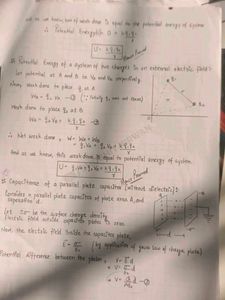 we know, net work done is equal to the potential energy of system
∴ Potential Energy(U) = k q₁ q₂ / r
U = k q₁ q₂ / r
Potential Energy of a system of two charges in an external electric field:
Let potential at A and B be VA and VB respectively,
Now, work done to place q₁ at A
WA = q₁ VA — ①
Work done to place q₂ at B
WB = q₂ VB + k q₁ q₂ / r — ②
∴ Net work done, W = WA + WB
= q₁ VA + q₂ VB + k q₁ q₂ / r
And as we know, this work done is equal to potential energy of system.
U = q₁ VA + q₂ VB + k q₁ q₂ / r
Capacitance of a parallel plate capacitor (without dielectric):
Consider a parallel plate capacitor of plate area A, and
separation d.
Let σ be the surface charge density
Electric field outside capacitor plates is zero.
Now, the electric field inside the capacitor plate,
E = σ / ε₀ (by application of gauss law of charge plate)
Potential difference between the plates, V = E d
V = σ / ε₀ d